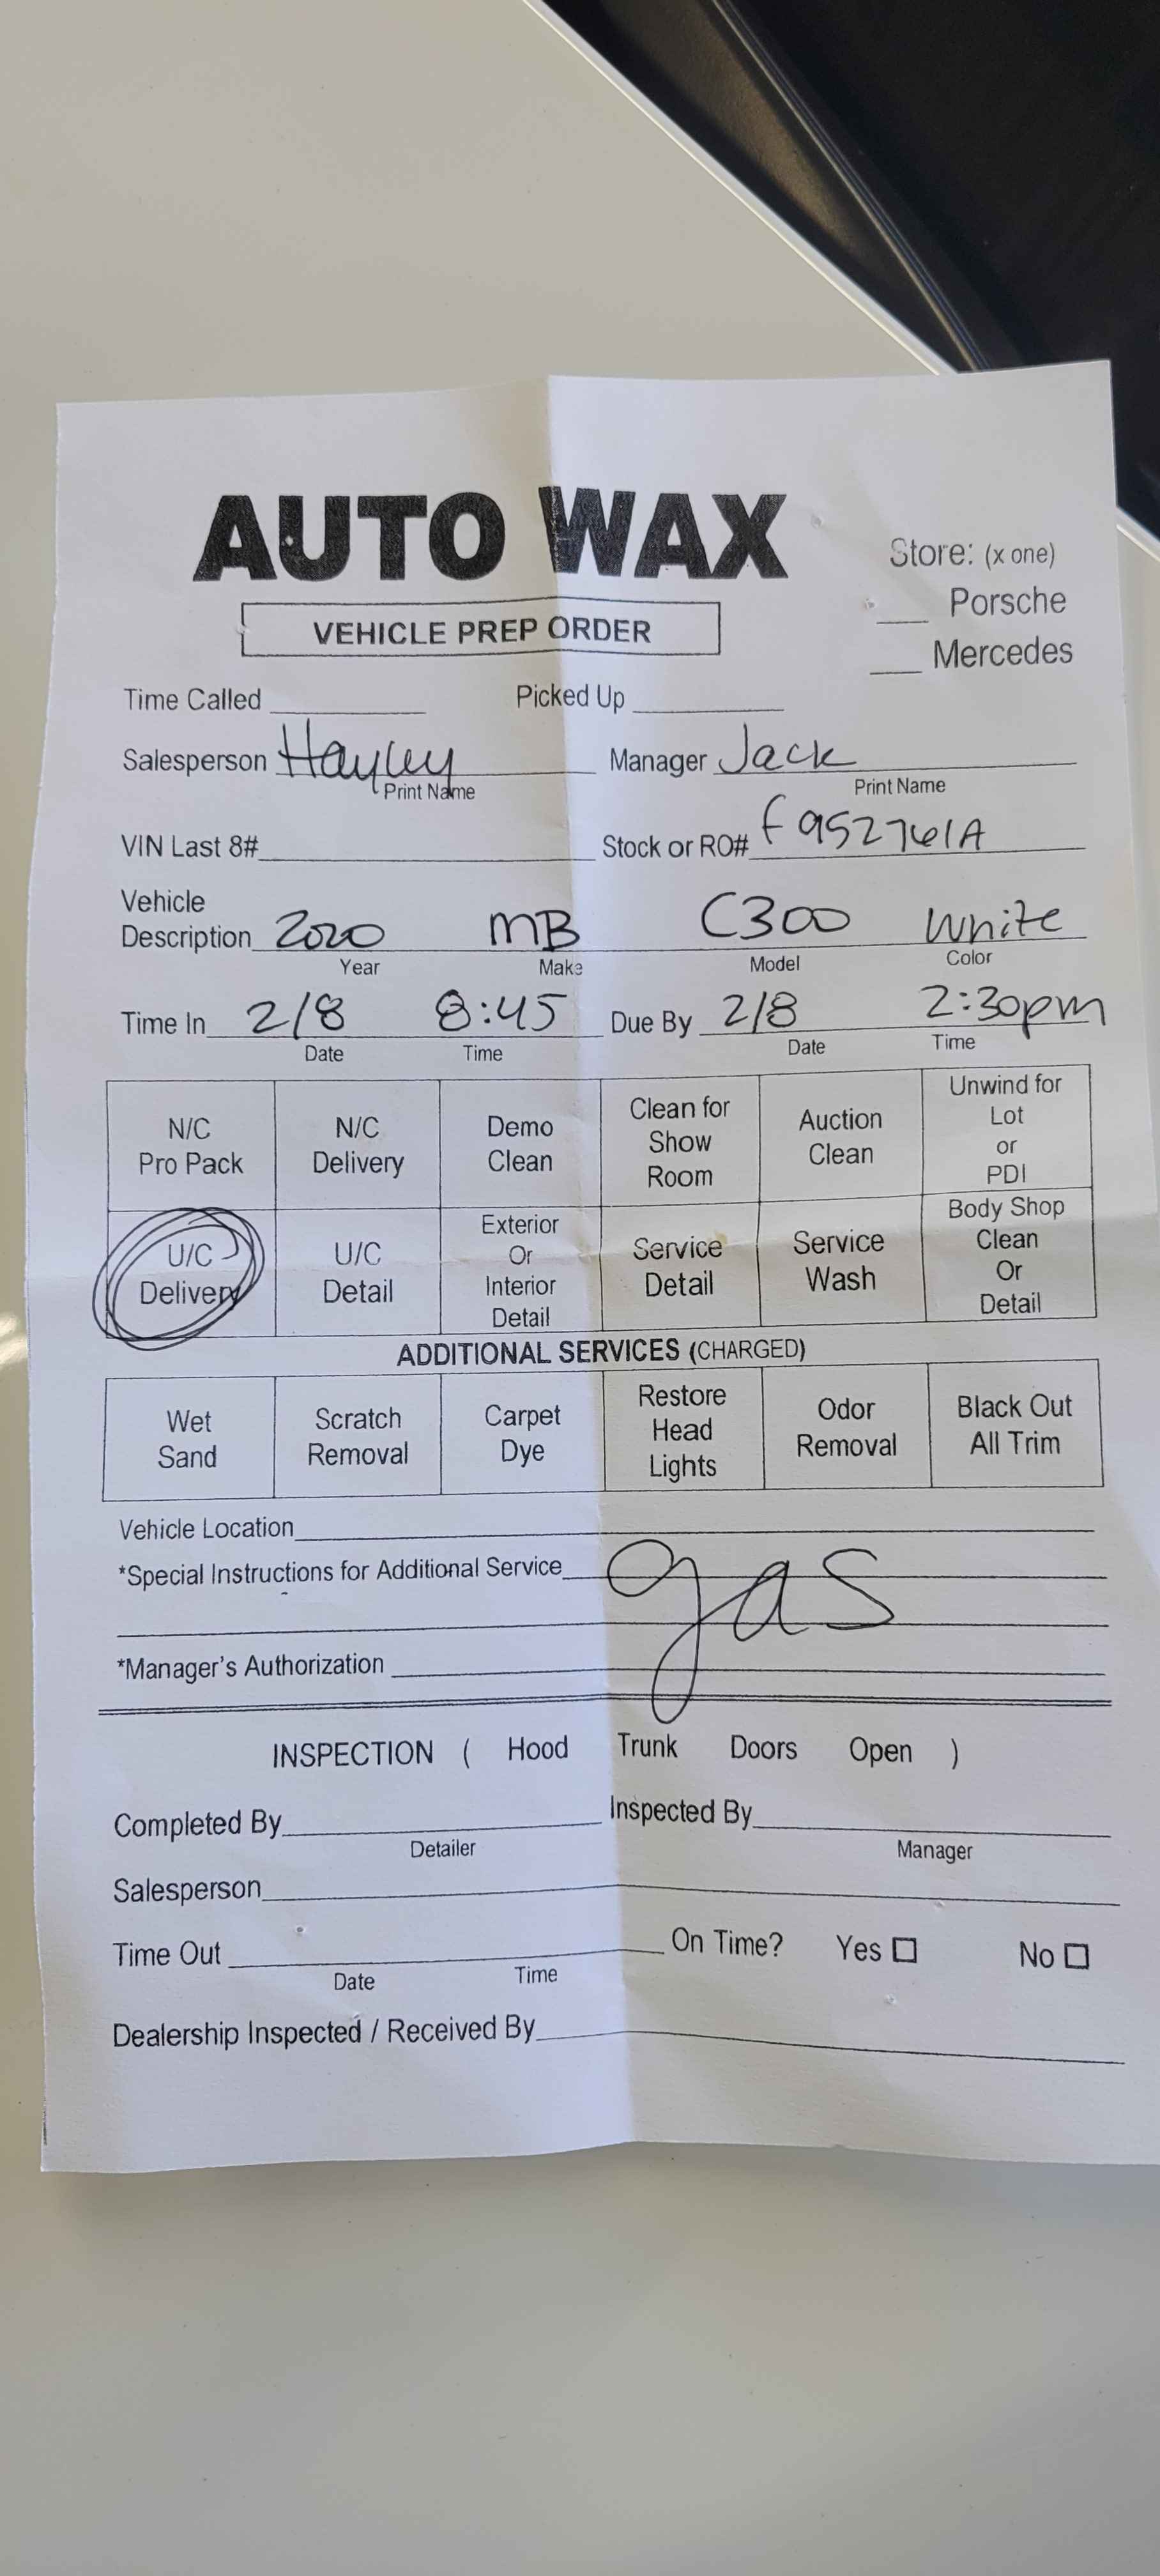 AUTO WAX
Store: (x one)
VEHICLE PREP ORDER
___ Porsche
___ Mercedes
Time Called ___ Picked Up ___
Salesperson Hayley Manager Jack
Print Name Print Name
VIN Last 8# ___ Stock or RO# f952761A
Vehicle
Description 2020 MB C300 White
Year Make Model Color
Time In 2/8 8:45 Due By 2/8 2:30pm
Date Time Date Time
N/C Pro Pack
N/C Delivery
Demo Clean
Clean for Show Room
Auction Clean
Unwind for Lot or PDI
U/C Delivery
U/C Detail
Exterior Or Interior Detail
Service Detail
Service Wash
Body Shop Clean Or Detail
ADDITIONAL SERVICES (CHARGED)
Wet Sand
Scratch Removal
Carpet Dye
Restore Head Lights
Odor Removal
Black Out All Trim
Vehicle Location ___
*Special Instructions for Additional Service gas
*Manager's Authorization ___
INSPECTION ( Hood Trunk Doors Open )
Completed By ___ Inspected By ___
Detailer Manager
Salesperson ___
Time Out ___ On Time? Yes ☐ No ☐
Date Time
Dealership Inspected / Received By ___